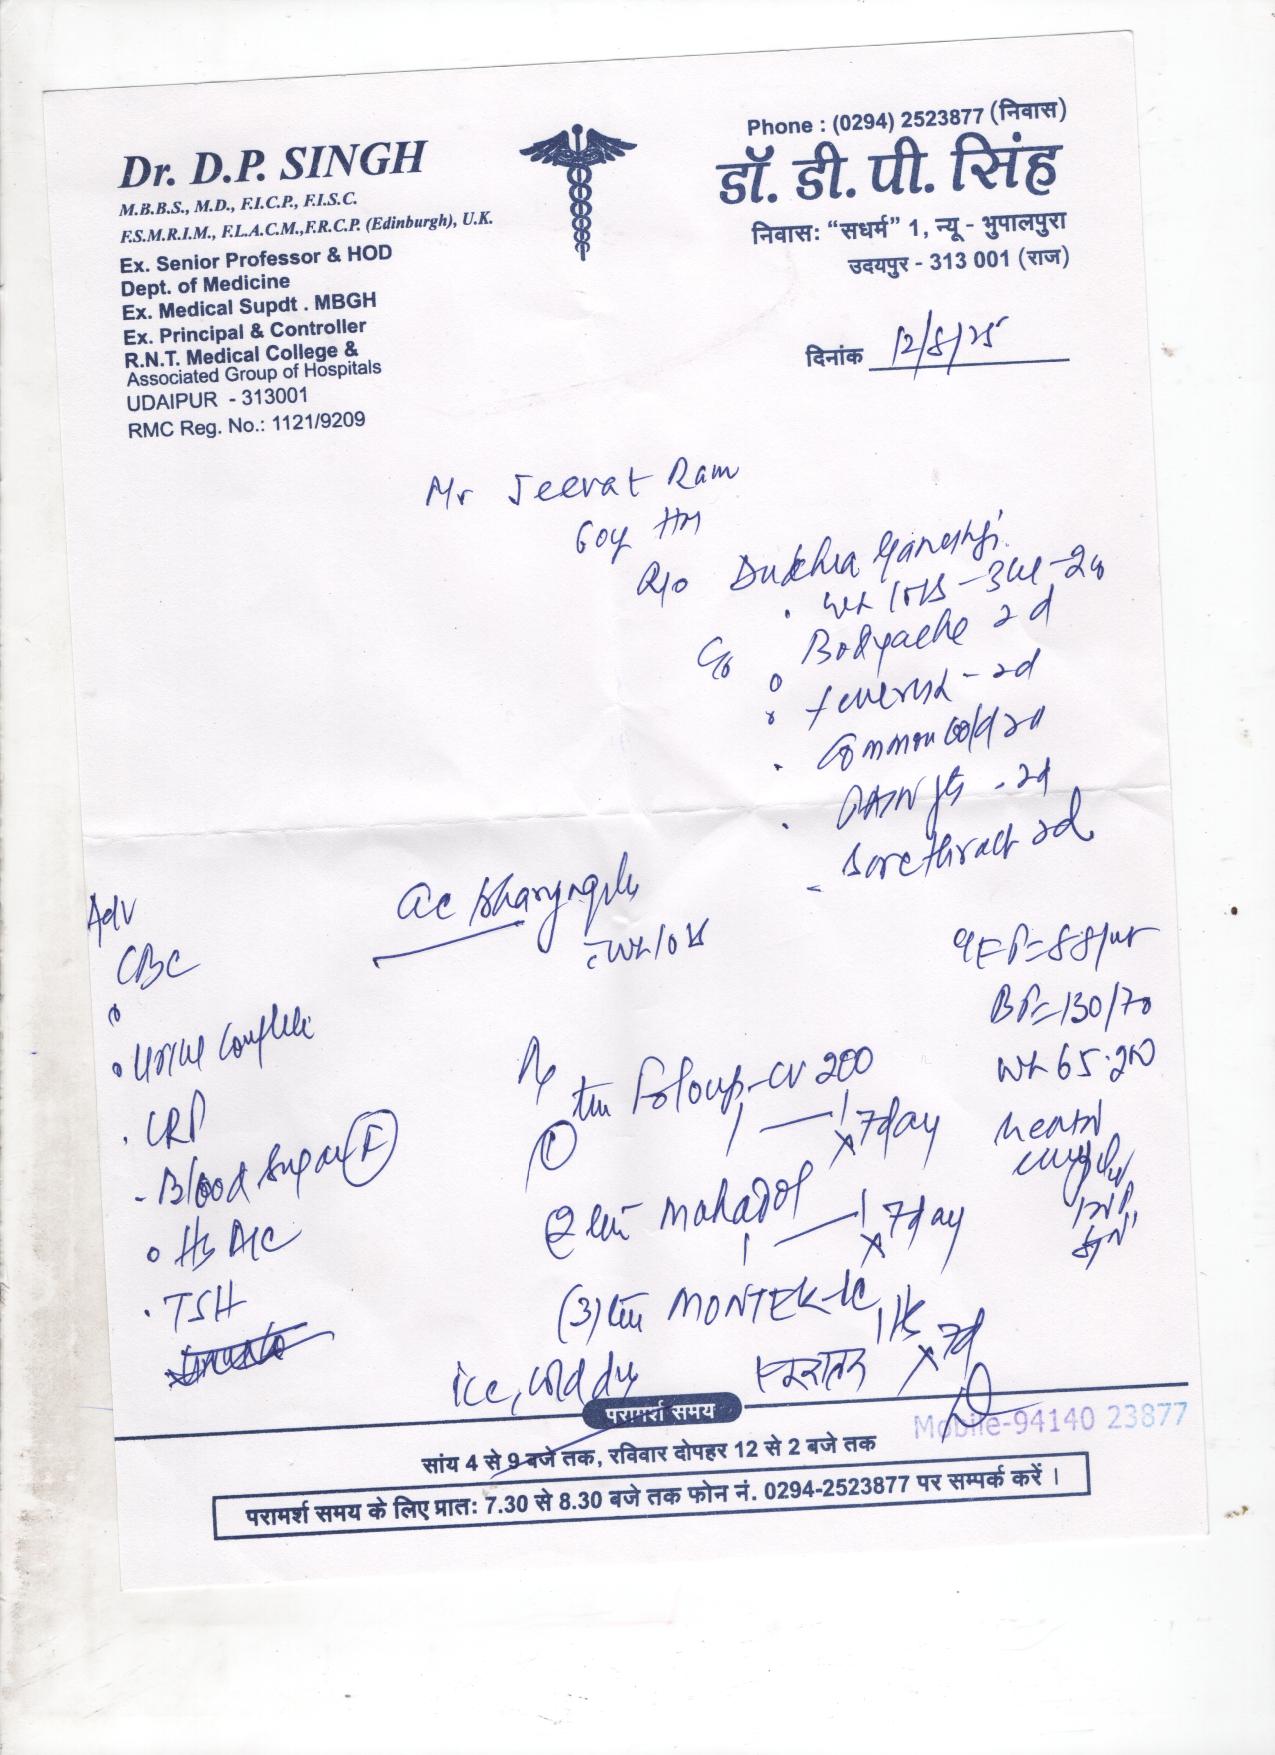 Dr. D.P. SINGH
M.B.B.S., M.D., F.I.C.P., F.I.S.C.
F.S.M.R.I.M., F.L.A.C.M.,F.R.C.P. (Edinburgh), U.K.
Ex. Senior Professor & HOD
Dept. of Medicine
Ex. Medical Supdt . MBGH
Ex. Principal & Controller
R.N.T. Medical College &
Associated Group of Hospitals
UDAIPUR - 313001
RMC Reg. No.: 1121/9209
Phone : (0294) 2523877 (निवास)
डॉ. डी. पी. सिंह
निवास: “सधर्म” 1, न्यू - भुपालपुरा
उदयपुर - 313 001 (राज)
दिनांक 12/8/25
Mr Jeevat Ram
60y
R/o
C/o Bodyache 2d
feverish - 2d
Common Cold 2d
- 2d
Sore throat 2d
Ac Pharyngitis
Adv
CBC
Urine Complete
CRP
Blood Sugar F
Hb A1C
TSH
P = 88/mt
BP = 130/70
Wt 65.200
Rx
CV 200
1 — 1 x 7day
2
1 — 1 x 7day
(3) MONTEK-LC
1 HS x 7d
ice, cold
परामर्श समय
Mobile-94140 23877
सांय 4 से 9 बजे तक, रविवार दोपहर 12 से 2 बजे तक
परामर्श समय के लिए प्रात: 7.30 से 8.30 बजे तक फोन नं. 0294-2523877 पर सम्पर्क करें ।